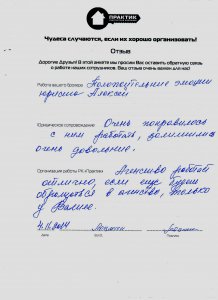 ПРАКТИК
Чудеса случаются, если их хорошо организовать!
Отзыв
Дорогие Друзья! В этой анкете мы просим Вас оставить обратную связь
о работе наших сотрудников. Ваш отзыв очень важен для нас!
Работа вашего брокера Положительные эмоции
юриста Алексей
Юридическое сопровождение Очень понравилось
с ним работать, остались
очень довольные.
Организация работы РК «Практик» Агенство работой
отлично, если еще будем
обращаться в агенство, только
к Вашему.
4.11.2014
Дата Ф.И.О. Подпись